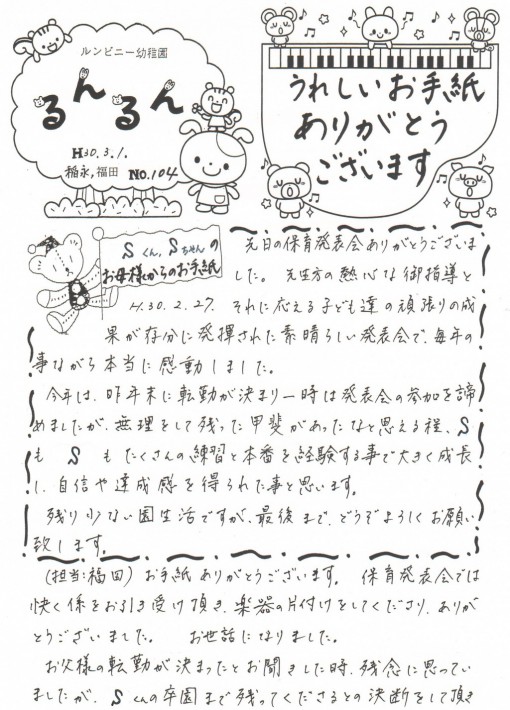 ルンビニー幼稚園
るんるん
H30.3.1.
稲永,福田 No.104
うれしいお手紙
ありがとう
ございます
Sくん,Sちゃんの
お母様からのお手紙
H.30.2.27.
先日の保育発表会ありがとうございま
した。先生方の熱心な御指導と
それに応える子ども達の頑張りの成
果が存分に発揮された素晴らしい発表会で、毎年の
事ながら本当に感動しました。
今年は、昨年末に転勤が決まり一時は発表会の参加を諦
めましたが、無理をして残った甲斐があったなと思える程、S
も S もたくさんの練習と本番を経験する事で大きく成長
し、自信や達成感を得られた事と思います。
残り少ない園生活ですが、最後まで、どうぞよろしくお願い
致します。
(担当:福田) お手紙ありがとうございます。 保育発表会では
快く係をお引き受け頂き、楽器の片付けをしてくださり、ありが
とうございました。 お世話になりました。
お父様の転勤が決まったとお聞きした時、残念に思ってい
ましたが、Sくんの卒園まで残ってくださるとの決断をして頂き